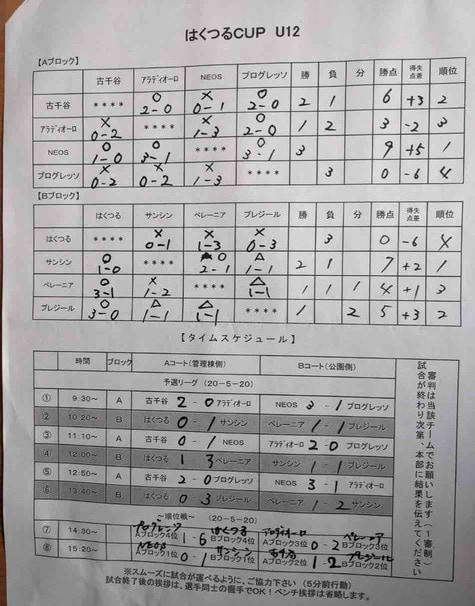 はくつるCUP U12
【Aブロック】
古千谷 アラディオーロ NEOS プログレッソ 勝 負 分 勝点 得失点差 順位
古千谷 **** ○ 2-0 × 0-1 ○ 2-0 2 1 6 +3 2
アラディオーロ × 0-2 **** × 1-3 ○ 2-0 1 2 3 -2 3
NEOS ○ 1-0 ○ 3-1 **** ○ 3-1 3 9 +5 1
プログレッソ × 0-2 × 0-2 × 1-3 **** 3 0 -6 4
【Bブロック】
はくつる サンシン ベレーニア プレジール 勝 負 分 勝点 得失点差 順位
はくつる **** × 0-1 × 1-3 × 0-3 3 0 -6 4
サンシン ○ 1-0 **** ○ 2-1 △ 1-1 2 1 7 +2 1
ベレーニア ○ 3-1 × 1-2 **** △ 1-1 1 1 1 4 +1 3
プレジール ○ 3-0 △ 1-1 △ 1-1 **** 1 2 5 +3 2
【タイムスケジュール】
時間 ブロック Aコート(管理棟側) Bコート(公園側)
予選リーグ (20-5-20)
① 9:30~ A 古千谷 2-0 アラディオーロ NEOS 3-1 プログレッソ
② 10:20~ B はくつる 0-1 サンシン ベレーニア 1-1 プレジール
③ 11:10~ A 古千谷 0-1 NEOS アラディオーロ 2-0 プログレッソ
④ 12:00~ B はくつる 1 3 ベレーニア サンシン 1-1 プレジール
⑤ 12:50~ A 古千谷 2-0 プログレッソ NEOS 3-1 アラディオーロ
⑥ 13:40~ B はくつる 0 3 プレジール ベレーニア 1-2 サンシン
~順位戦~ (20-5-20)
⑦ 14:30~ Aブロック4位 1-6 はくつる Bブロック4位 Aブロック3位 0-2 ベレーニア Bブロック3位
⑧ 15:20~ NEOS Aブロック1位 0-1 サンシン Bブロック1位 Aブロック2位 1-2 プレジール Bブロック2位
審判は当該チームでお願いします(1審制)
試合が終わり次第、本部に結果を伝えてください
※スムーズに試合が運べるように、ご協力下さい(5分前行動)
試合終了後の挨拶は、選手同士の握手でOK!ベンチ挨拶は省略します。